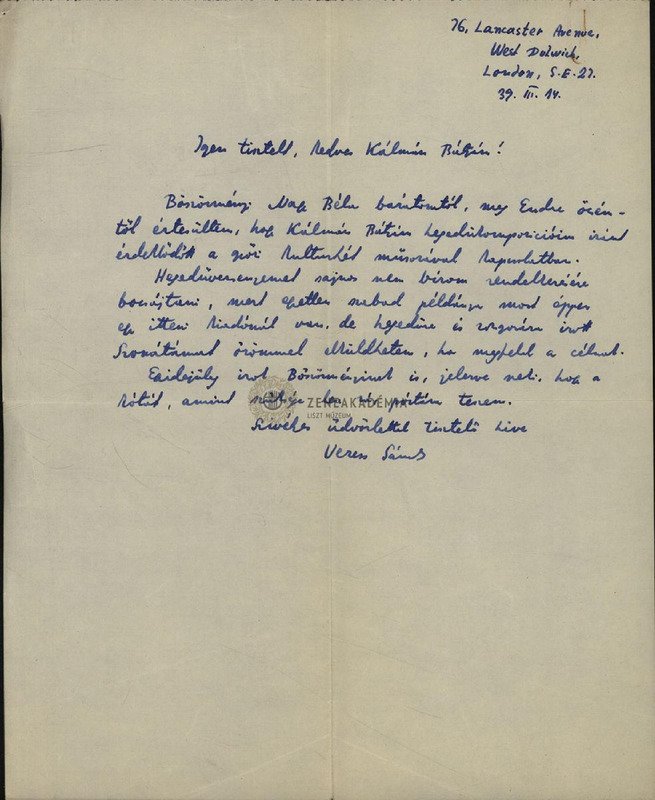 76, Lancaster Avenue,
West Dulwich,
London, S.E.27.
39. III. 14.
Igen tisztelt, kedves Kálmán Bátyám!
Böszörményi Nagy Béla barátomtól, meg Endre öcsém-
től értesültem, hogy Kálmán Bátyám hegedűkompozicióim iránt
érdeklődött a győri Kulturhét műsorával kapcsolatban.
Hegedűversenyemet sajnos nem bírom rendelkezésére
bocsájtani, mert egyetlen szabad példánya most éppen
egy itteni kiadónál van, de hegedűre és zongorára irott
Szonátámat örömmel elküldhetem, ha megfelel a célnak.
Ezidejűleg irok Böszörményinek is, jelezve neki, hogy a
kótát, amint postára teszem.
ZENEAKADÉMIA
LISZT MÚZEUM
Szívélyes üdvözlettel tisztelő híve
Veress Sándor